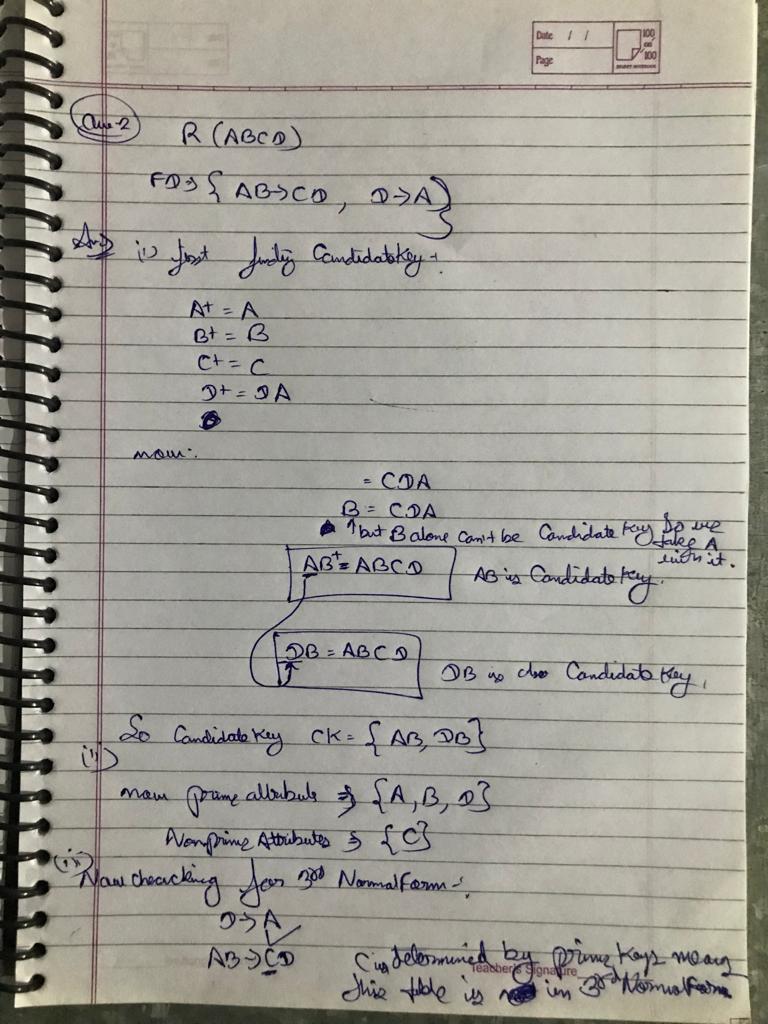 Date / /
Page
100 on 100
Que-2
R (ABCD)
FD ⇒ { AB→CD , D→A }
Ans (i) first finding CandidateKey :
A+ = A
B+ = B
C+ = C
D+ = DA
now:
= CDA
B = CDA
↑ but B alone can't be Candidate key So we take A with it.
AB+ = ABCD AB is CandidateKey.
DB = ABCD DB is also CandidateKey.
So CandidateKey CK = { AB, DB}
(ii)
now prime attribute ⇒ {A, B, D}
Nonprime Attributes ⇒ {C}
(iii)
Now cheacking for 3rd NormalForm :
D→A
AB→CD
C is determined by prime Keys means
Teacher's Signature
this table is in 3rd NormalForm